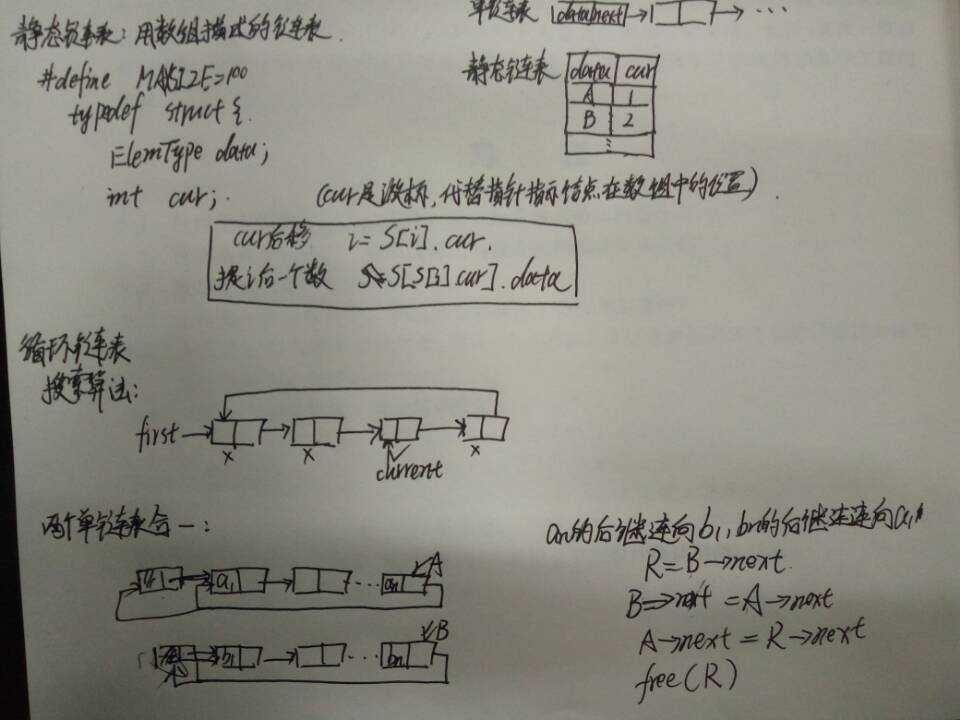 单链表 data next → …
静态链表：用数组描述的链表
#define MAXSIZE=100
静态链表 data cur
A 1
B 2
⋮
typedef struct {
ElemType data;
int cur; (cur是游标,代替指针指示结点在数组中的位置)
cur后移 i = S[i].cur.
提i后一个数 S=S[S[i].cur].data
循环链表
搜索算法:
first
x x current x
两个单链表合一:
an的后继连向b1,bn的后继连向a1
R=B→next
B→next = A→next
A→next = R→next
free(R)
a1 … an A
b1 … bn B